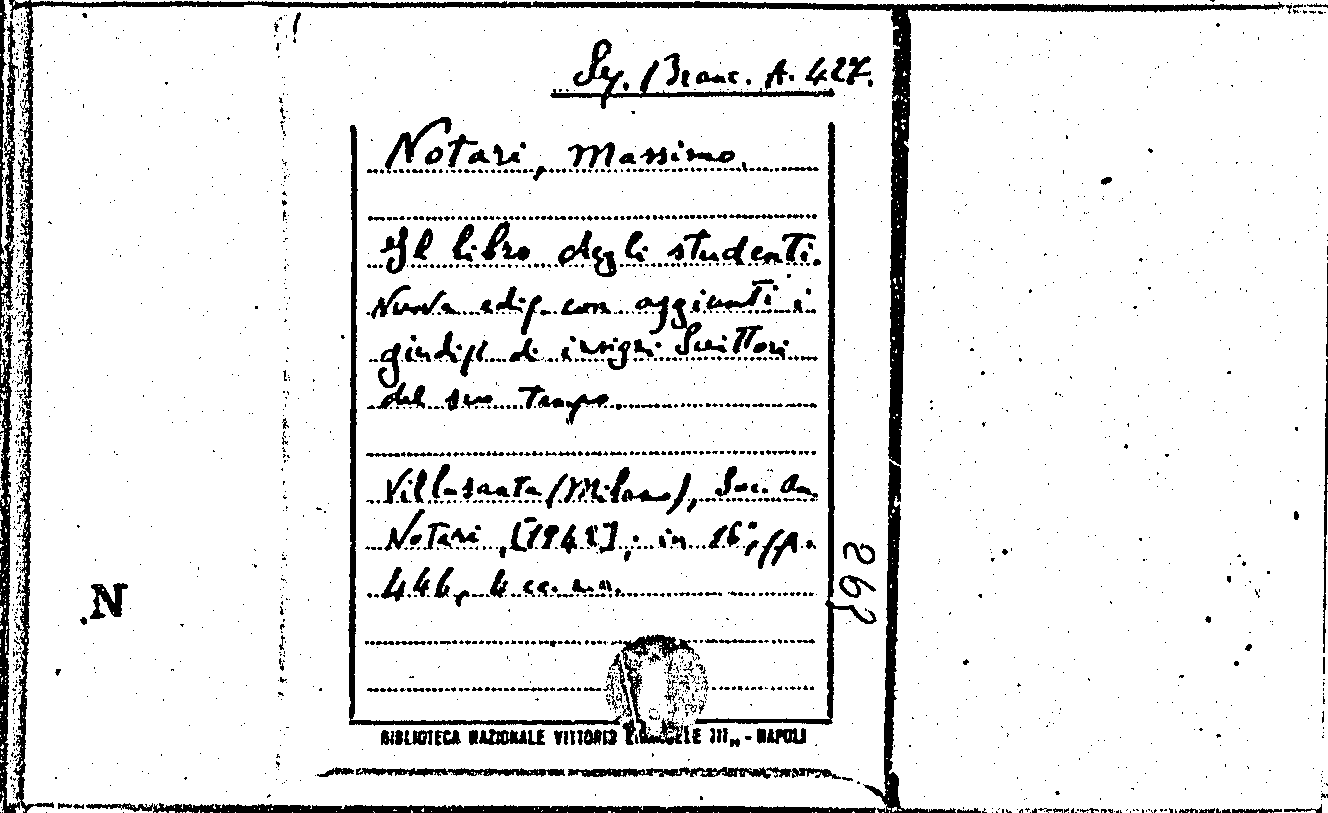 Sez. Branc. A. 427.
Notari, Massimo.
Il libro degli studenti.
Nuova ediz. con aggiunti i
giudizi di insigni Scrittori
del suo tempo.
Villasanta (Milano), Soc. An.
Notari, [1942]; in 16°, pp.
446, 4 cc. nn.
263
N
BIBLIOTECA NAZIONALE VITTORIO EMANUELE III„ - NAPOLI